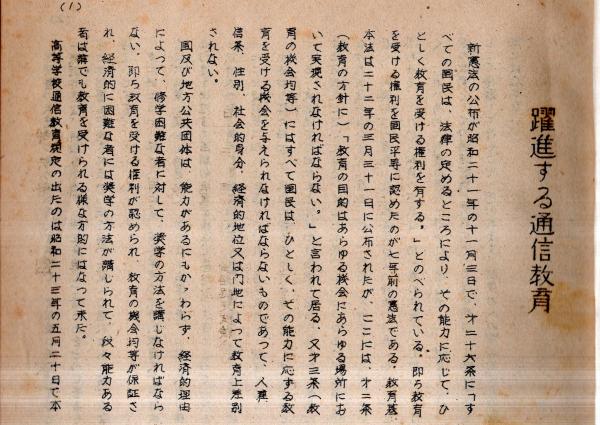 (1)
躍進する通信教育
新憲法の公布が昭和二十一年の十一月三日で、才二十六条に「す
べての国民は、法律の定めるところにより、その能力に応じて、ひ
としく教育を受ける権利を有する。」とのべられている。即ち教育
を受ける権利を国民平等に認めたのが七年前の憲法である。教育基
本法は二十二年の三月三十一日に公布されたが、ここには、才二条
(教育の方針に)「教育の目的はあらゆる機会にあらゆる場所にお
いて実現されなければならない。」と言われて居る、又才三条(教
育の機会均等)にはすべて国民は、ひとしく、その能力に応ずる教
育を受ける機会を与えられなければならないものであつて、人種
信条、性別、社会的身分、経済的地位又は門地によつて教育上差別
されない。
国及び地方公共団体は、能力があるにもかゝわらず、経済的理由
によつて、修学困難な者に対して、奨学の方法を講じなければなら
ない。即ち教育を受ける権利が認められ、教育の機会均等が保証さ
れ、経済的に困難な者には奨学の方法が講じられて、段々能力ある
者は誰でも教育を受けられる様な方向にはなつて来た。
高等学校通信教育規定の出たのは昭和二十三年の五月二十日で本